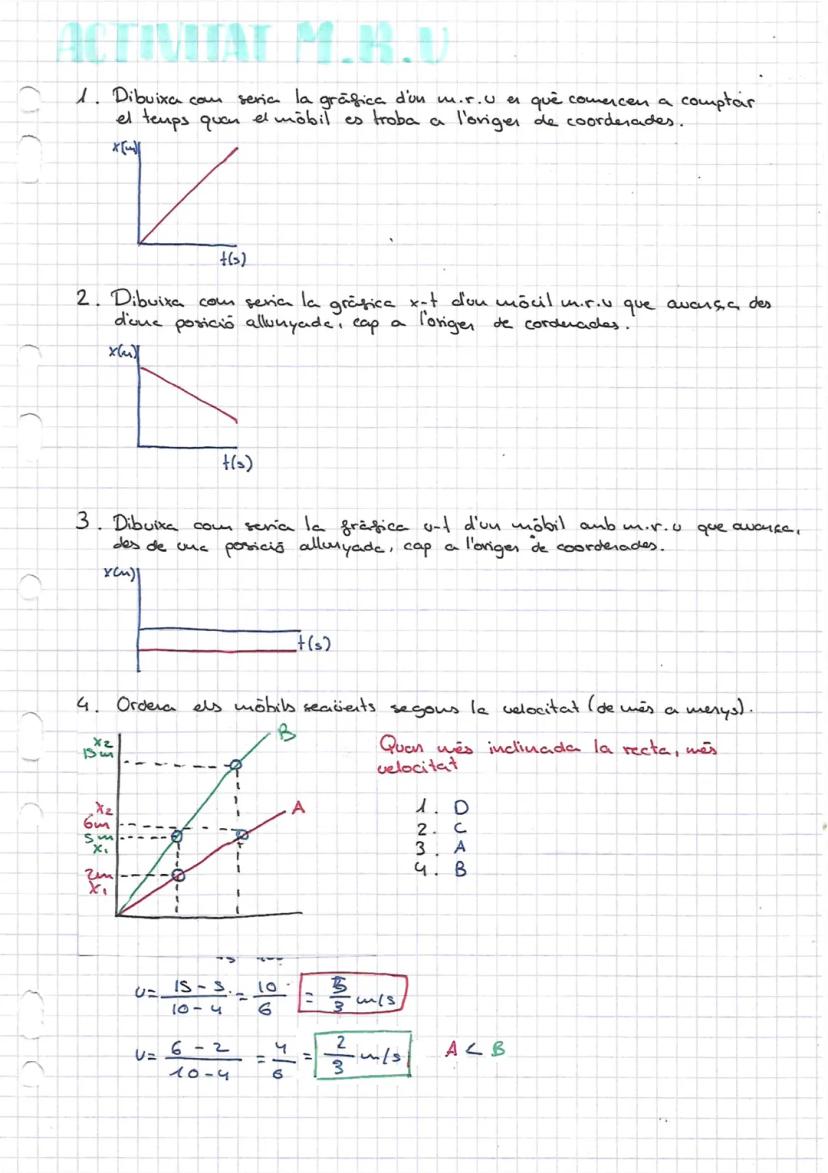 ACTIVITAT M.R.U
1. Dibuixa com seria la gràfica d'un m.r.u en què comencen a comptar
el temps quan el mòbil es troba a l'origen de coordenades.
x(m)
t(s)
2. Dibuixa com seria la gràfica x-t d'un mòcil m.r.u que avança, des
d'una posició allunyada, cap a l'origen de cordenades.
x(m)
t(s)
3. Dibuixa com seria la gràfica v-t d'un mòbil amb m.r.u que avança,
des de una posició allunyada, cap a l'origen de coordenades.
x(m)
t(s)
4. Ordena els mòbils següents segons la velocitat (de més a menys).
B
x2
15m
A
x2
6m
5m
x1
2m
x1
Quan més inclinada la recta, més
velocitat
1. D
2. C
3. A
4. B
v= 15-5 / 10-4 = 10 / 6 = 5 / 3 m/s
v= 6-2 / 10-4 = 4 / 6 = 2 / 3 m/s A < B